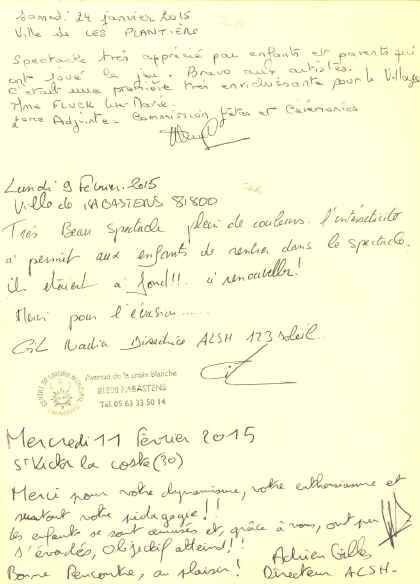 Samedi 24 janvier 2015
Ville de LES PLANTIERS
Spectacle très apprécié par enfants et parents qui
ont joué le jeu. Bravo aux artistes.
C'était une première très enrichissante pour le Village
Mme FLUCK Marie
Adjointe - Commission fêtes et Cérémonies
Lundi 9 Février 2015
Ville de RABASTENS 81800
Très Beau spectacle plein de couleurs. l'intéractivité
a permit aux enfants de rentrer dans le spectacle.
ils étaient à fond!! à renouveller!
Merci pour l'évasion......
Gil Nadia Directrice ALSH 123 Soleil
Avenue de la croix blanche
81800 RABASTENS
Tél. 05 63 33 50 14
Mercredi 11 Février 2015
St Victor la coste (30)
Merci pour votre dynamisme, votre enthousiasme et
surtout votre pédagogie!!
Les enfants se sont amusés et, grâce à vous, ont pu
s'évadés, objectif atteind!!
Bonne Rencontre, au plaisir!
Adrien Gilles
Directeur ALSH-